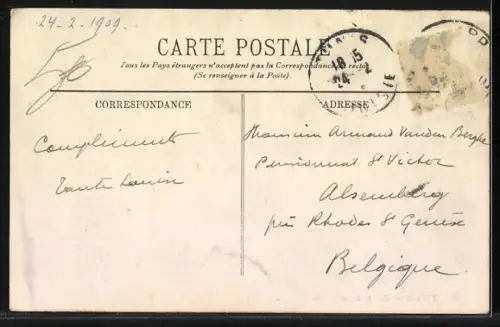 24-2-1909
CARTE POSTALE
Tous les Pays étrangers n'acceptent pas la Correspondance au recto
(Se renseigner à la Poste).
TUNIS
18 15
24 2
TUNISIE
CORRESPONDANCE
ADRESSE
Compliments
Tante Louise
Monsieur Armand Vanden Berghe
Pensionnat St Victor
Alsemberg
près Rhodes St Genèse
Belgique